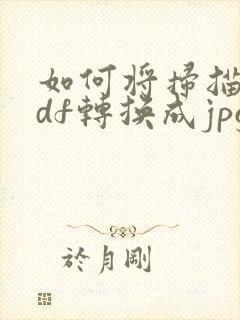 如何将掃描
df轉换成jpg
於月剛